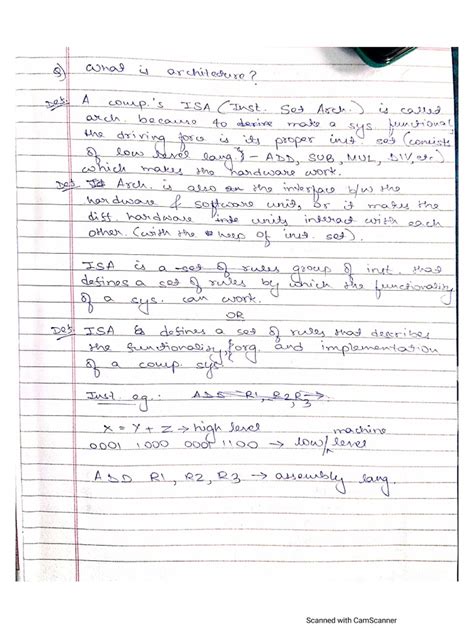 Q) What is architecture?
Def. A comp.'s ISA (Inst. Set Arch.) is called
arch. because to derive make a sys functional,
the driving force is its proper inst. set (consists
of low level lang} - ADD, SUB, MUL, DIV, etc.)
which makes the hardware work.
Def. Arch. is also an the interface b/w the
hardware & software unit, or it makes the
diff. hardware units interact with each
other. (with the help of inst. set).
ISA is a set of rules group of inst. that
defines a set of rules by which the functionality
of a sys. can work.
OR
Def. ISA defines a set of rules that describes
the functionality, org. and implementation
of a comp. sys
Inst. eg: ADD R1, R2, R3 →
X = Y + Z → high level
0001 1000 0001 1100 → low/ machine level
ADD R1, R2, R3 → assembly lang.
Scanned with CamScanner